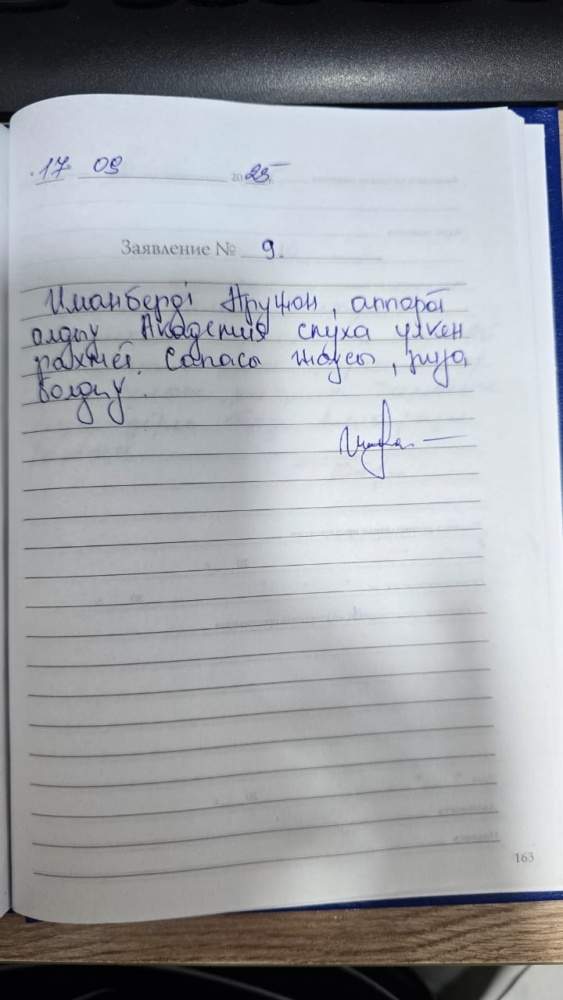 17 09 2025
Заявление № 9.
Иманберді Аружан, аппарат
алдық Академия слуха үлкен
рахмет. Сапасы жақсы, риза
болдық.
163